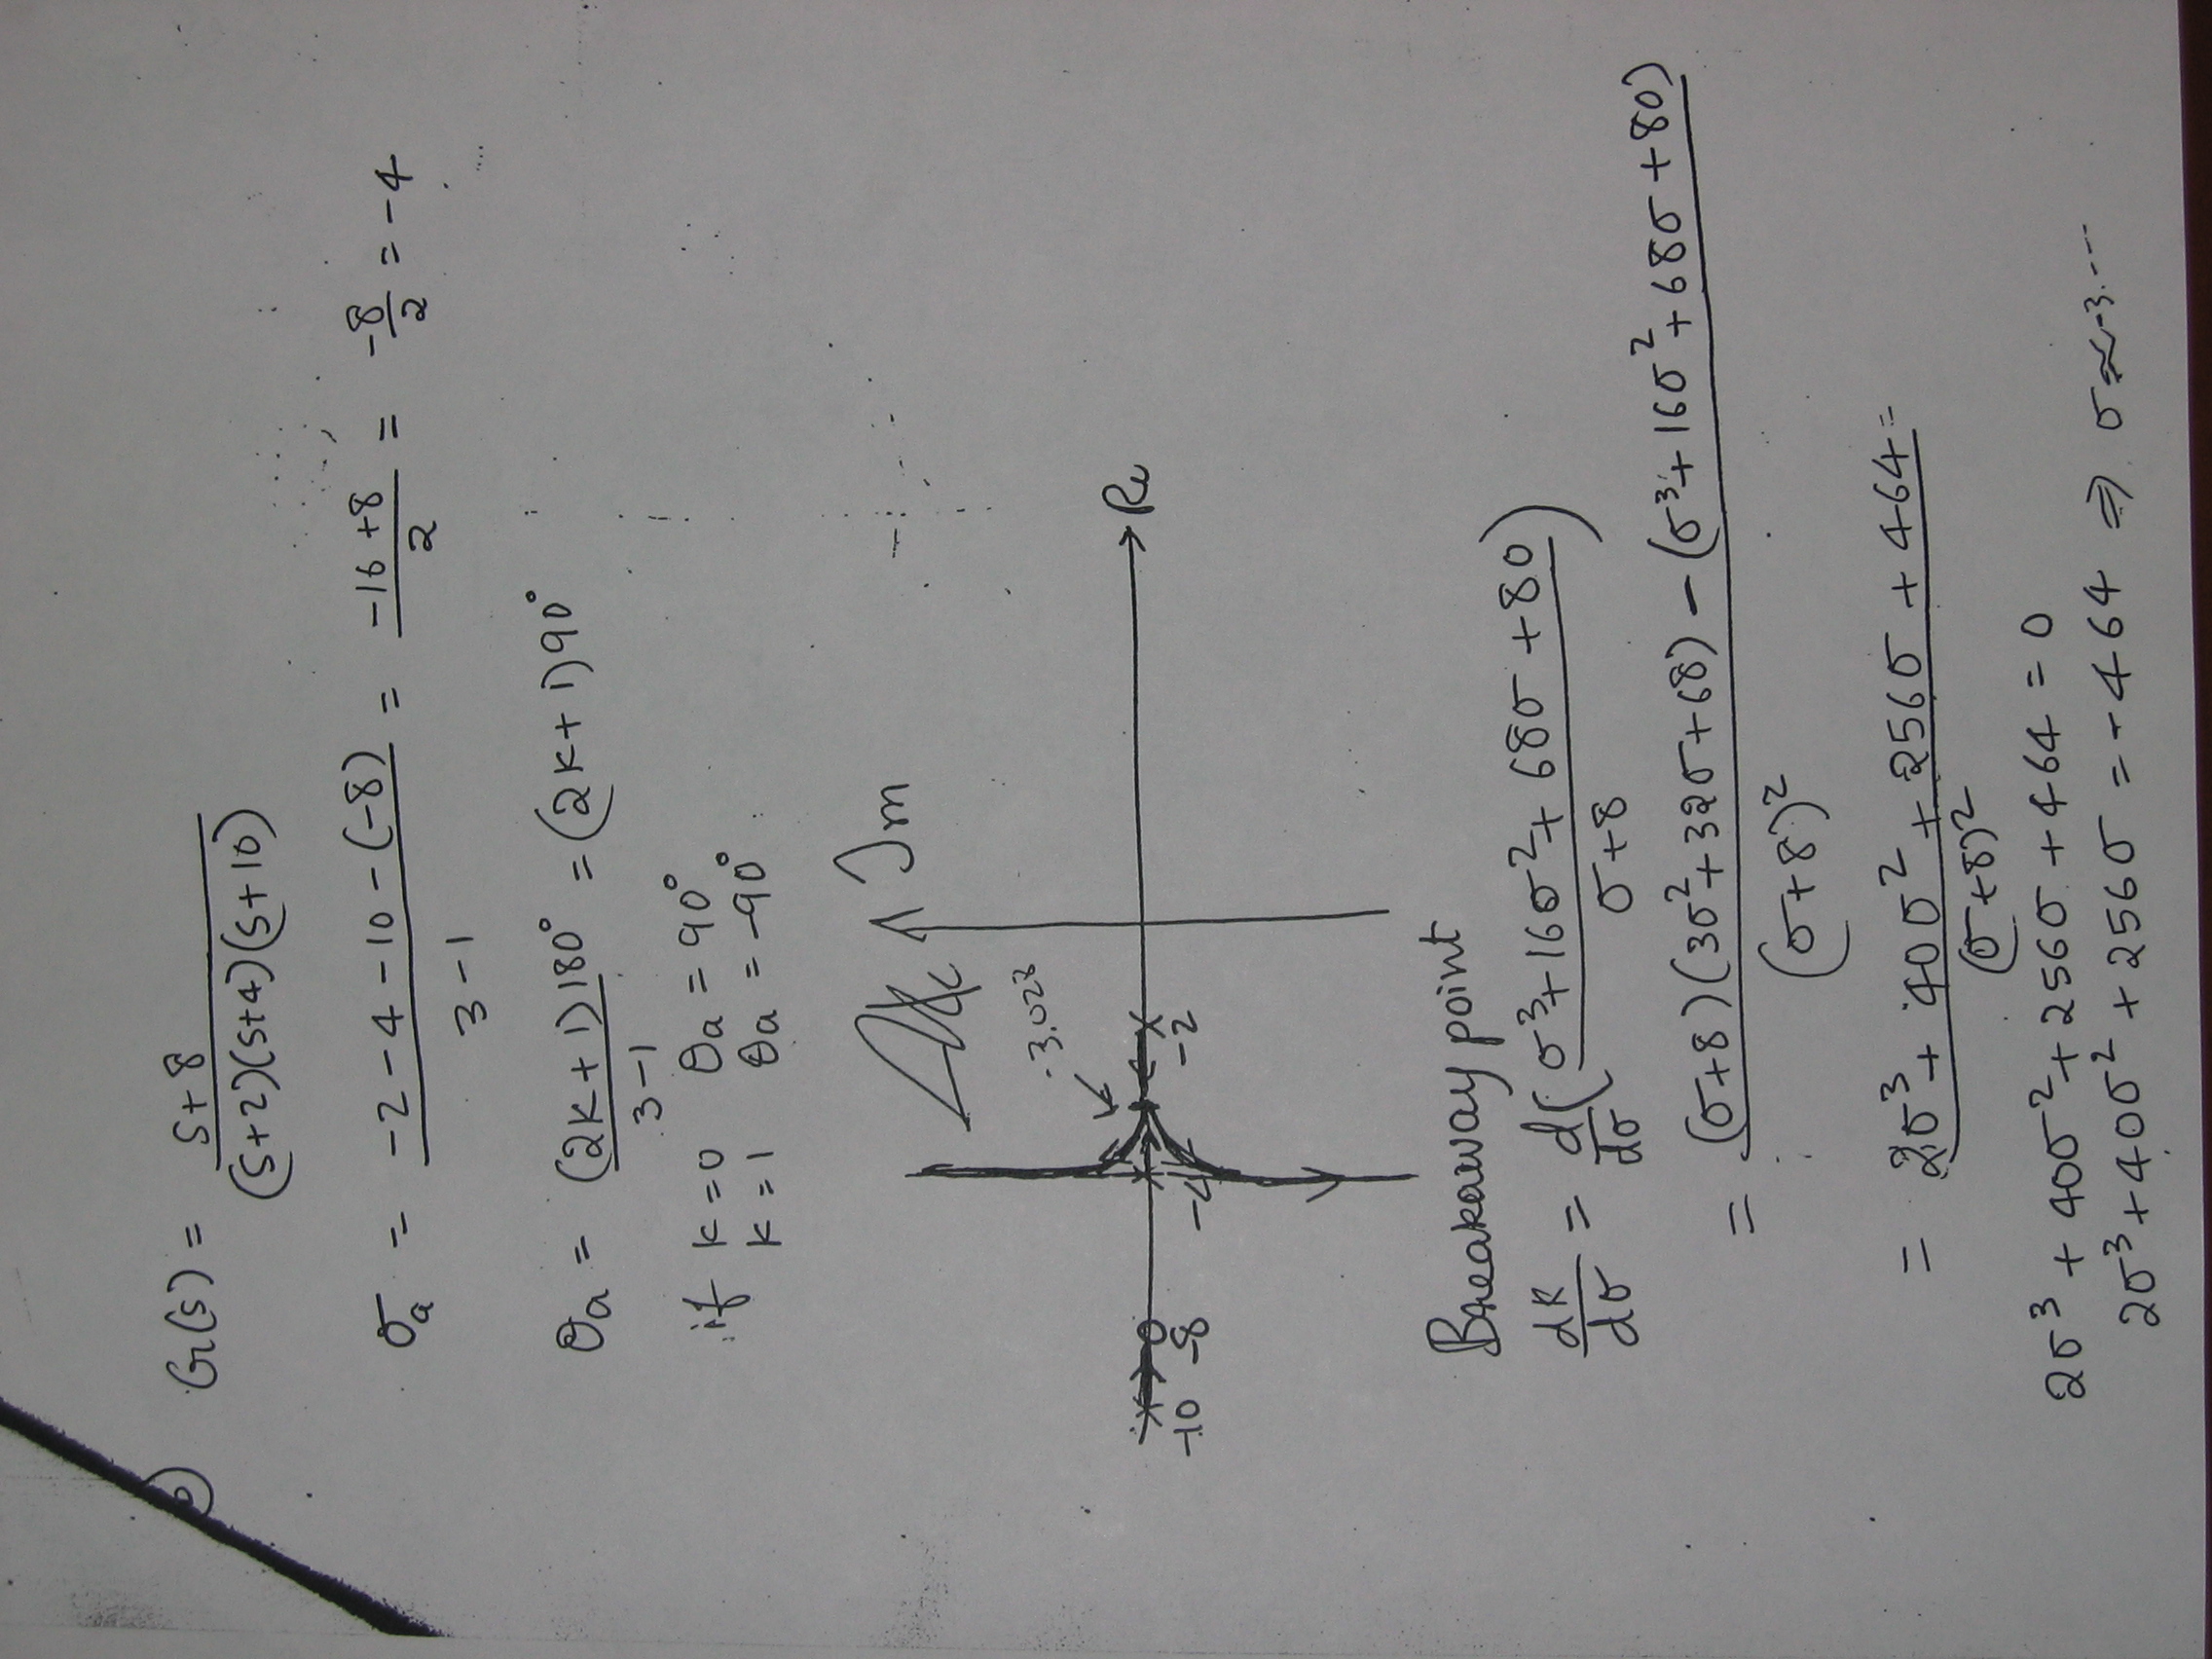 G(s) = s+8 / (s+2)(s+4)(s+10)
σa = -2-4-10-(-8) / 3-1 = -16+8 / 2 = -8/2 = -4
θa = (2K+1)180° / 3-1 = (2K+1)90°
if K=0 θa = 90°
K=1 θa = -90°
Im
-3.028
Re
-10 -8 -4 -2
Breakaway point
dK/dσ = d/dσ (σ³+16σ²+68σ+80 / σ+8)
= (σ+8)(3σ²+32σ+68) - (σ³+16σ²+68σ+80) / (σ+8)²
= 2σ³+40σ²+256σ+464= / (σ+8)²
2σ³+40σ²+256σ+464=0
2σ³+40σ²+256σ=-464 ⇒ σ≈-3...